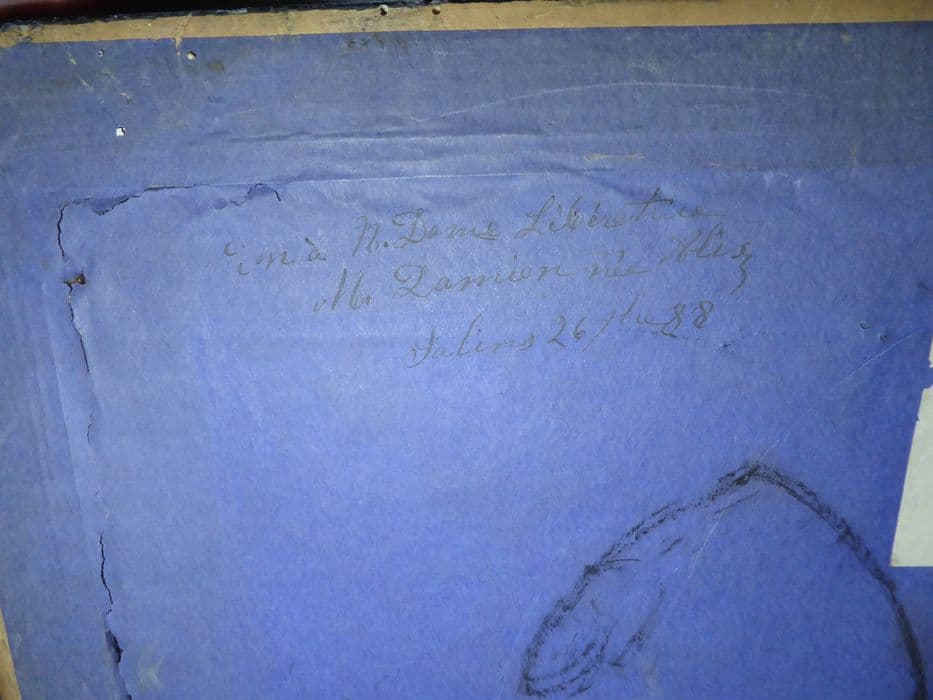 à N. Dame Libératrice
M. Damien née
Salins 26 88